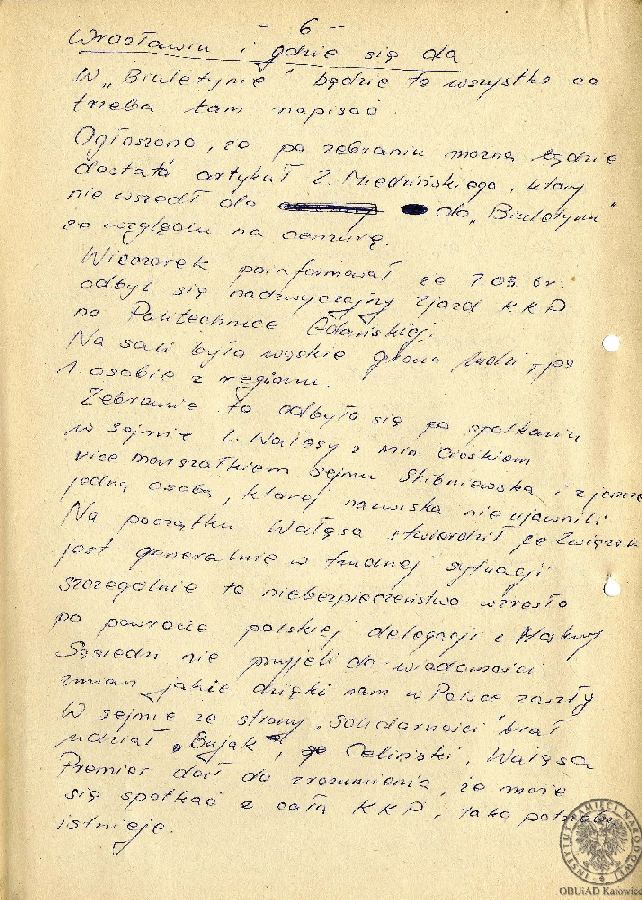 - 6 -
Wrocławiu i gdzie się da
W „Biuletynie" będzie to wszystko co
trzeba tam napisać.
Ogłoszono, że po zebraniu można będzie
dostać artykuł Z. Miedzińskiego, który
nie wszedł do do „Biuletynu"
ze względu na cenzurę.
Wieczorek poinformował że 7.03. br.
odbył się nadzwyczajny zjazd KKP
na Politechnice Gdańskiej.
Na sali było wąskie grono ludzi, po
1 osobie z regionu.
Zebranie to odbyło się po spotkaniu
w sejmie L. Wałęsy z min Cioskiem
vice marszałkiem sejmu Skibniewską i z jeszcze
jedną osobą, której nazwiska nie ujawnili.
Na początku Wałęsa stwierdził że Związek
jest generalnie w trudnej sytuacji
szczególnie to niebezpieczeństwo wzrosło
po powrocie polskiej delegacji z Moskwy
Sąsiedzi nie przyjęli do wiadomości
zmian jakie dzięki nam w Polsce zaszły
W sejmie ze strony „Solidarności" brał
udział „Bujak", Celiński, Wałęsa
Premier dał do zrozumienia, że może
się spotkać z całą KKP, taka potrzeba
istnieje.
INSTYTUT PAMIĘCI NARODOWEJ
OBUiAD Katowice